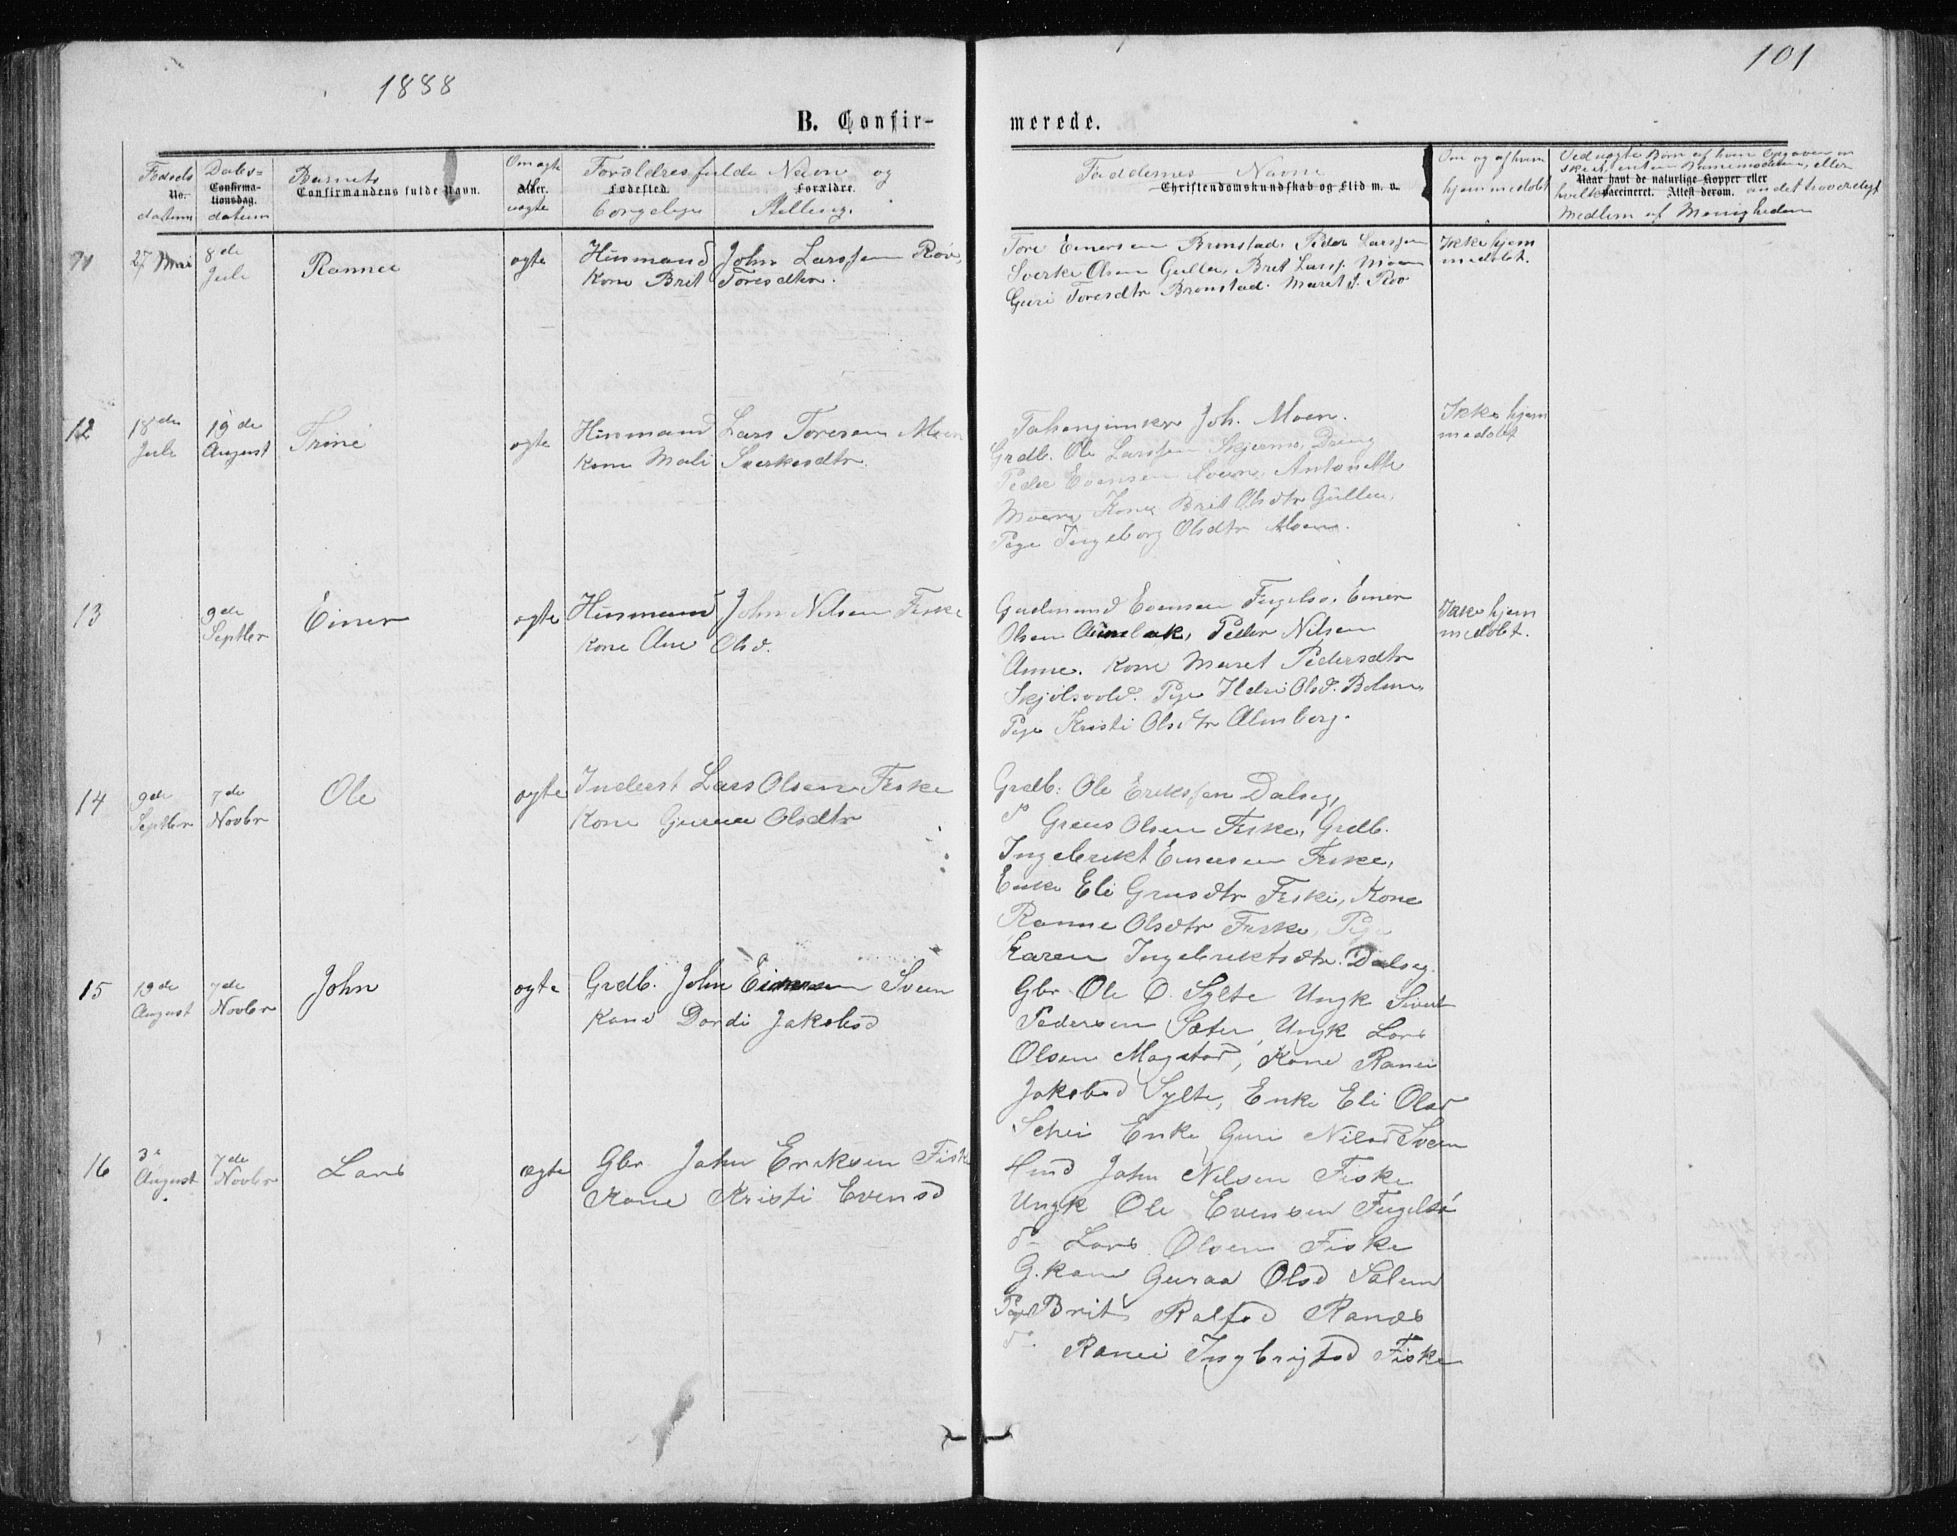 1888
101
B. Confir-
merede.
Fødsels
No.
datum
Dabs-
Confirma-
tionsdag.
datum
Barnets
Confirmandens fulde Navn.
Om ægte
Alder.
uægte
Forældres fulde Navn og
Fødested. Forældre.
Stilling.
Faddernes Navne
Christendomskundskab og Flid m. v.
Om og af hvem
hjemmedøbt
Ved uægte Børn af hvem Opgaven er
Naar havt de naturlige Kopper eller
vaccineret. Attest derom.
Medlem af Menigheden
27 Mai
8de
Juli
Rannei
ogte
Husmand John Larssen Röv,
Kone Brit Toresdtr.
Tore Einersen Brønstad. Peder Larssen
Sverke Olsen Gullen, Brit Larss. Moen
Guri Toresdtr Brønstad. Maret J. Röv
Ikke hjem
medøbt.
12
18de
Juli
19de
August
Trine
ogte
Husmand Lars Toresen Moen
Kone Mali Sverkesdtr.
Joh. Moen.
Grdb. Ole Larssen Skjermo, Dreng
Peder Evensen Svean, Antonette
Moen, Kone Brit Olsdtr Gullen,
Pige Ingeborg Olsdtr Moen.
Ikke hjem
medøbt
13
9de
Septbr
Einer
ogte
Husmand John Nilsen Fiske
Kone Ane Olsd.
Gudmund Evensen Fugelsø. Einer
Olsen Aunebak, Peder Nilsen
Aune. Kone Maret Pedersdtr
Skjölsvold. Pige Ildri Olsd. Bolme,
Pige Kristi Olsdtr Almberg.
Ikke hjem
medøbt.
14
9de
Septbr
7de
Novbr
Ole
ogte
Inderst Lars Olsen Fiske
Kone Guruu Olsdtr
Grdb: Ole Eriksen Dalseg,
Olsen Fiske, Grdb.
Ingebrikt Einersen Fiske,
Enke Eli Gruesdtr Fiske, Kone
Ranne Olsdtr Fiske, Pige
Karen Ingebriktsdtr. Dalseg.
15
19de
August
7de
Novbr
John
ogte
Grdb. John Einersen Sveen
Kone Dordi Jakobsd
Gbr Ole O. Sylte Ungk Sivert
Pedersen Sæter, Ungk Lars
Olsen Magstad, Kone Ranei
Jakobsd Sylte, Enke Eli Olsd
Schei Enke Guri Nilsd Sveen
16
3de
August
7de
Novbr
Lars
ægte
Gbr John Eriksen Fiske
Kone Kristi Evensd
Hmd John Nilsen Fiske
Ungk Ole Evensen Fugelsø
do Lars Olsen Fiske
G.kone Guraa Olsd Solem
Pige Brit Ralfsd Ranæs
do. Ranei Ingbrigtsd Fiske